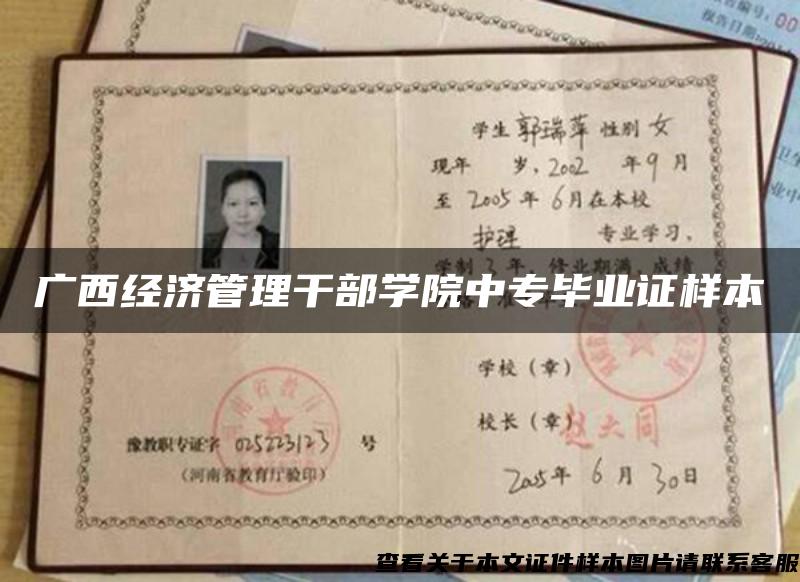 告编号:00
报告日期:201
学生 郭瑞萍 性别 女
现年 岁，2002 年 9 月
至 2005 年 6 月在本校
护理 专业学习，
学制 3 年 修业期满，成绩
广西经济管理干部学院中专毕业证样本
学校（章）
校长（章）赵大同
豫教职专证字 025223123 号
（河南省教育厅验印）
2005年 6 月 30日
查看关于本文证件样本图片请联系客服